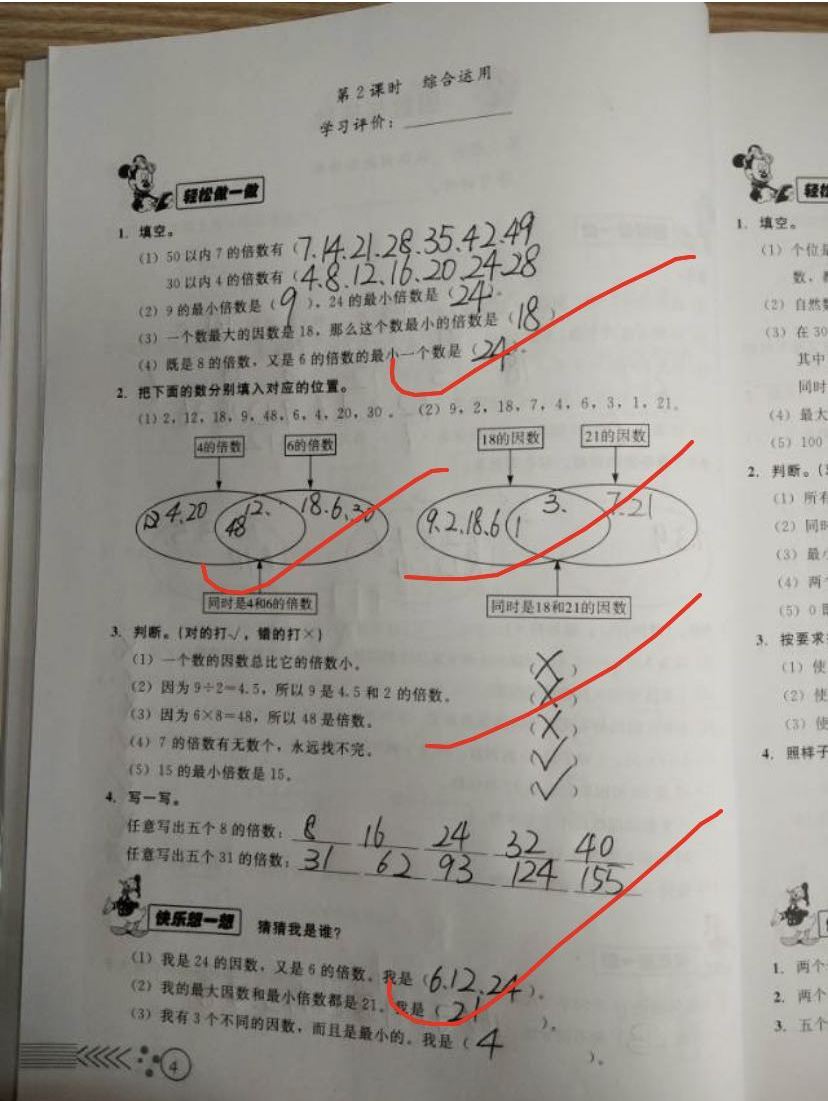 第2课时 综合运用
学习评价：
轻松做一做
1. 填空。
(1) 50以内7的倍数有(7.14.21.28.35.42.49
30以内4的倍数有(4.8.12.16.20.24.28
(2) 9的最小倍数是(9)，24的最小倍数是(24)。
(3) 一个数最大的因数是18，那么这个数最小的倍数是(18)
(4) 既是8的倍数，又是6的倍数的最小一个数是(24)。
2. 把下面的数分别填入对应的位置。
(1) 2，12，18，9，48，6，4，20，30。 (2) 9，2，18，7，4，6，3，1，21。
4的倍数 6的倍数 18的因数 21的因数
4.20 12、 48 18.6.30 9.2.18.6 3. 1 7.21
同时是4和6的倍数 同时是18和21的因数
3. 判断。(对的打√，错的打×)
(1) 一个数的因数总比它的倍数小。 (×)
(2) 因为9÷2=4.5，所以9是4.5和2的倍数。 (×)
(3) 因为6×8=48，所以48是倍数。 (×)
(4) 7的倍数有无数个，永远找不完。 (√)
(5) 15的最小倍数是15。 (√)
4. 写一写。
任意写出五个8的倍数：8 16 24 32 40
任意写出五个31的倍数：31 62 93 124 155
快乐想一想 猜猜我是谁？
(1) 我是24的因数，又是6的倍数。我是(6.12.24)。
(2) 我的最大因数和最小倍数都是21。我是(21)。
(3) 我有3个不同的因数，而且是最小的。我是(4)。
4
轻松
1. 填空。
(1) 个位是
数，
(2) 自然数
(3) 在30
其中
同时
(4) 最大
(5) 100
2. 判断。
(1) 所有
(2) 同时
(3) 最小
(4) 两个
(5) 0
3. 按要求
(1) 使
(2) 使
(3) 使
4. 照样子
1. 两个
2. 两个
3. 五个